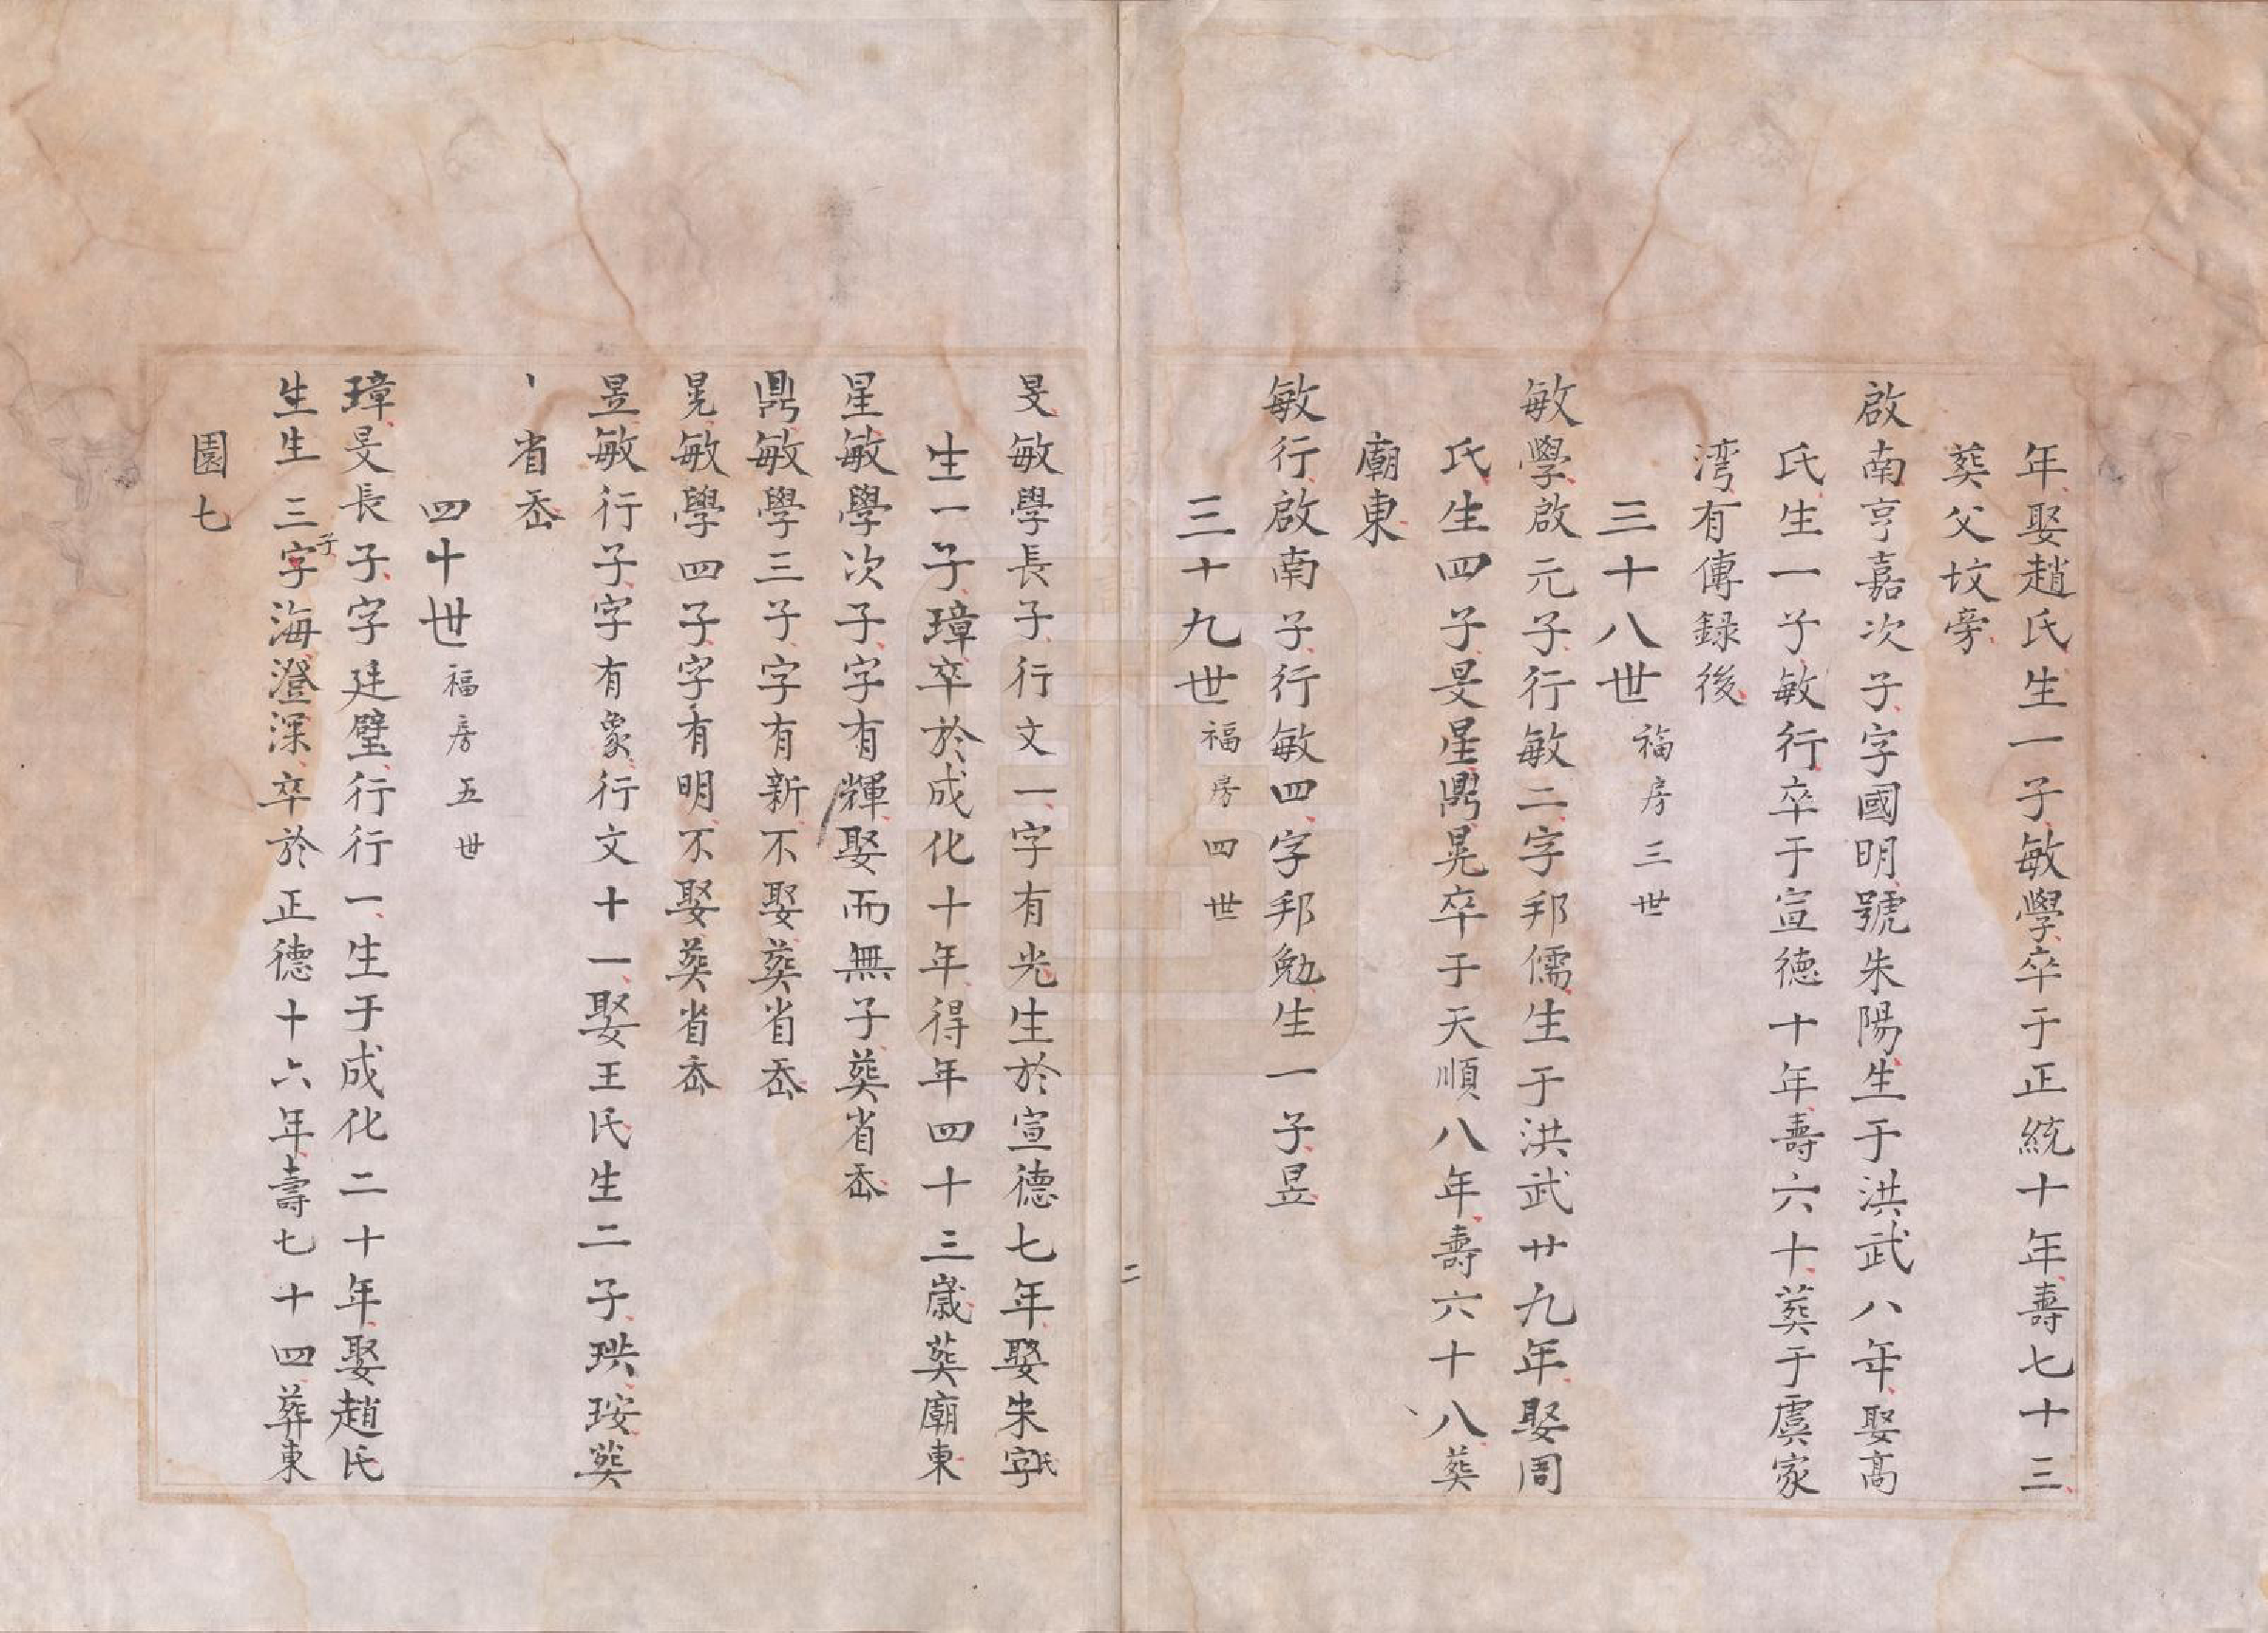 年娶趙氏生一子敏學卒于正統十年壽七十三
葬父坟旁
啟南亨嘉次子字國明號朱陽生于洪武八年娶高
氏生一子敏行卒于宣德十年壽六十葬于虞家
湾有傳録後
三十八世福房三世
敏學啟元子行敏二字邦儒生于洪武廿九年娶周
氏生四子旻星鼎晃卒于天順八年壽六十八葬
廟東
敏行啟南子行敏四字邦勉生一子昱
三十九世福房四世
二
旻敏學長子行文一字有光生於宣德七年娶朱氏
生一子璋卒於成化十年得年四十三歲葬廟東
星敏學次子字有輝娶而無子葬省岙
鼎敏學三子字有新不娶葬省岙
晃敏學四子字有明不娶葬省岙
昱敏行子字有象行文十一娶王氏生二子珙㺩葬
省岙
四十世福房五世
璋旻長子字廷璧行行一生于成化二十年娶趙氏
生生三子字海澄深卒於正德十六年壽七十四葬東
園七